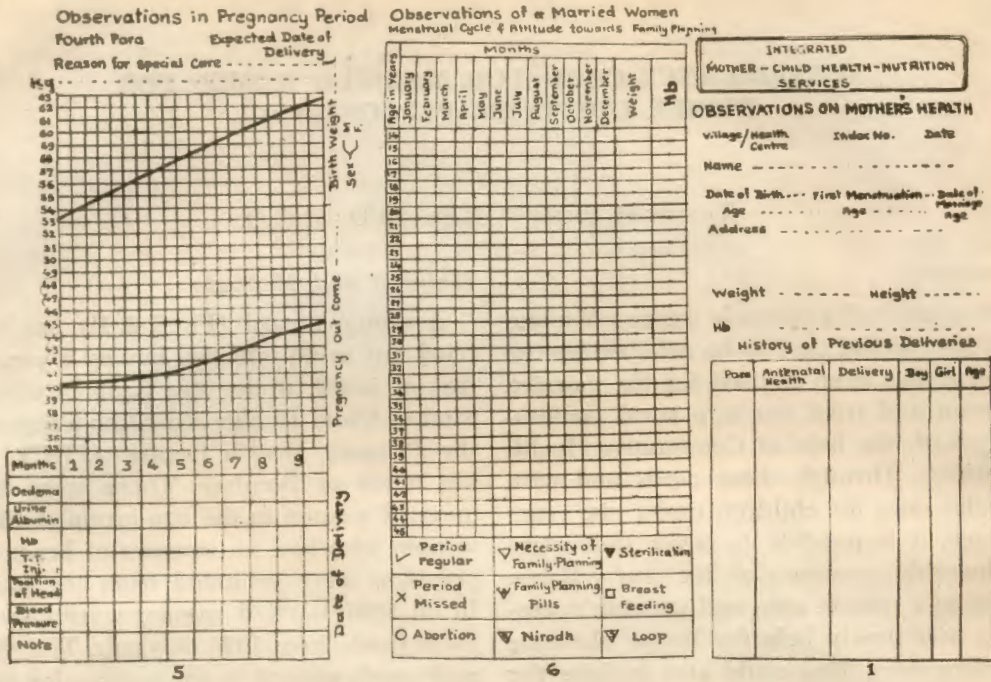 Observations in Pregnancy Period
Fourth Para
Expected Date of
Delivery
Reason for special Care
Kg
63
62
61
60
59
58
57
56
55
54
53
52
51
50
49
48
47
46
45
44
43
42
41
40
39
38
37
36
35
Birth Weight
Sex M
F.
Pregnancy out come
Date of Delivery
Months 1 2 3 4 5 6 7 8 9
Oedema
Urine
Albumin
Hb
T.T.
Inj.
Position
of Head
Blood
Pressure
Note
5
Observations of a Married Women
Menstrual Cycle & Attitude towards Family Planning
Months
Age in Years
January
February
March
April
May
June
July
August
September
October
November
December
Weight
Hb
14
15
16
17
18
19
20
21
22
23
24
25
26
27
28
29
30
31
32
33
34
35
36
37
38
39
40
41
42
43
44
45
Period
regular
Necessity of
Family-Planning
Sterilization
X Period
Missed
Family Planning
Pills
Breast
Feeding
Abortion
Nirodh
Loop
6
INTEGRATED
MOTHER-CHILD HEALTH-NUTRITION
SERVICES
OBSERVATIONS ON MOTHER'S HEALTH
Village/Health
Centre
Index No.
Date
Name
Date of Birth First Menstruation Date of
Marriage
Age Age Age
Address
Weight Height
Hb
History of Previous Deliveries
Para
Antenatal
Health
Delivery
Boy
Girl
Age
1